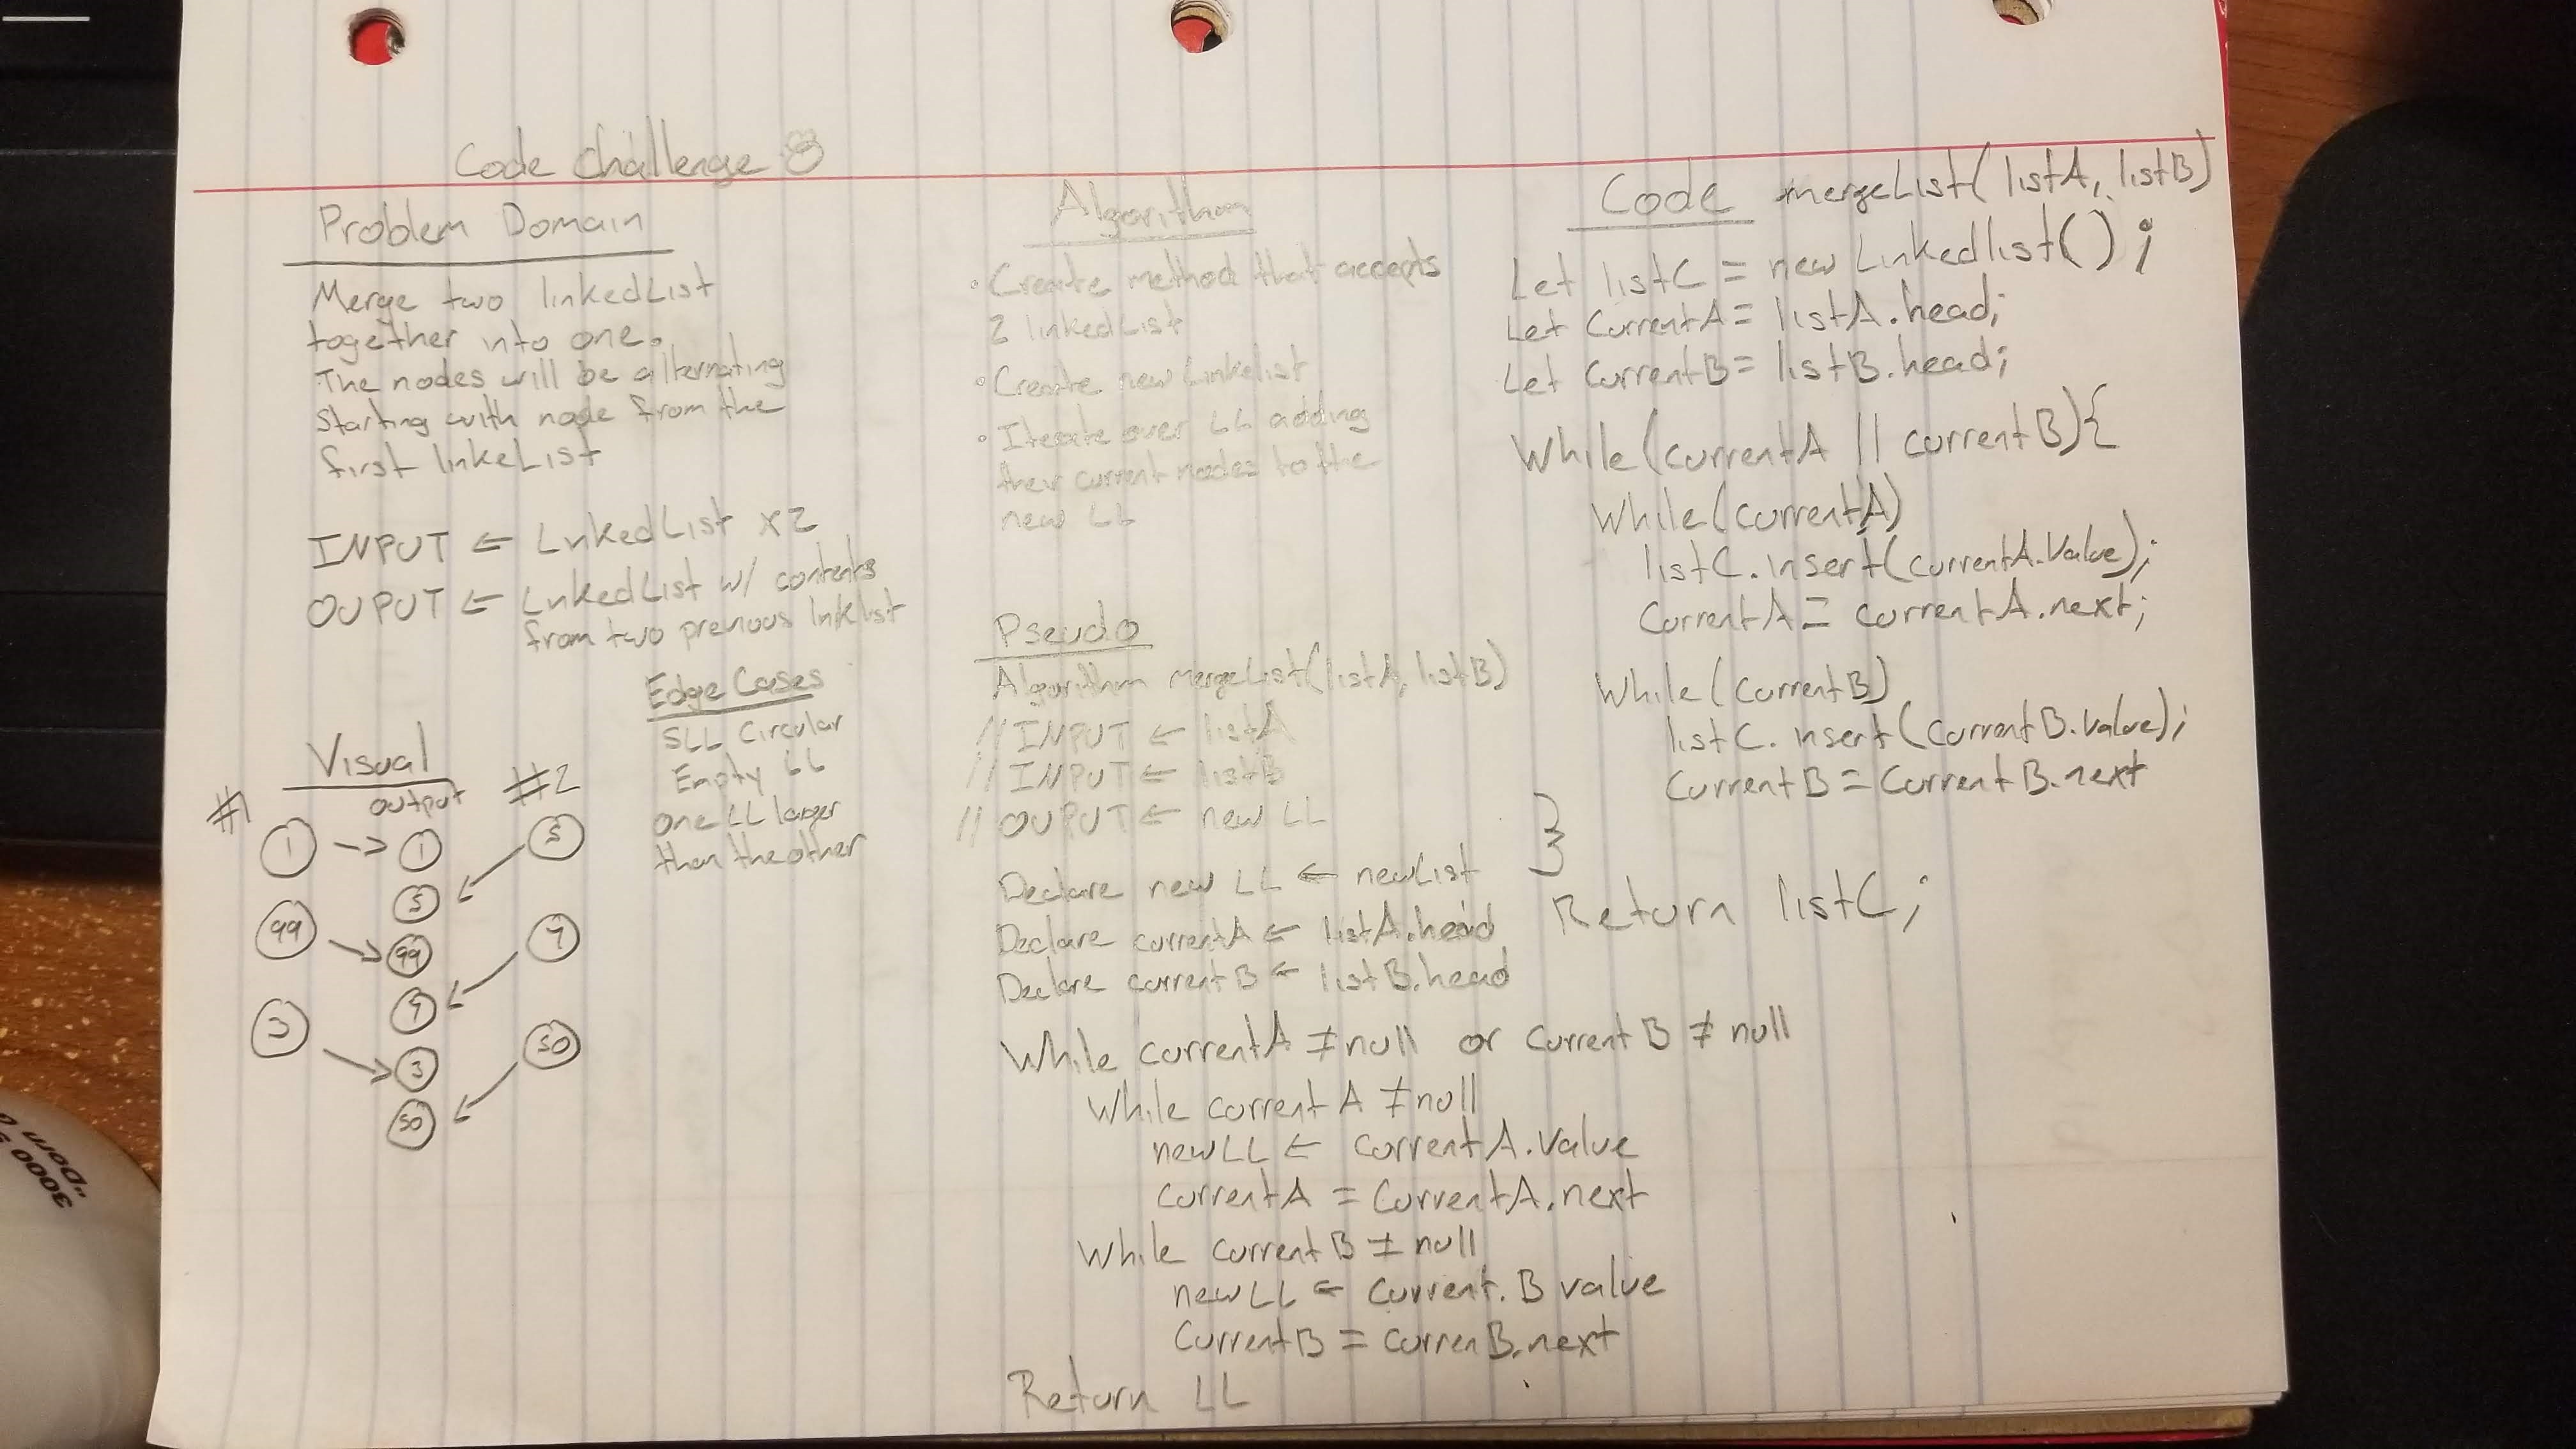 Code Challenge 8
Problem Domain
Merge two linkedList
together into one.
The nodes will be alternating
Starting with node from the
first linkeList
INPUT ← LnkedList x2
OUPUT ← LnkedList w/ contents
from two previous lnklist
Edge Cases
SLL Circular
Empty LL
One LL larger
than the other
Visual
#1 output #2
1 → 1 5
5
99 → 99 9
9
3 → 3 50
50
Algorithm
• Create method that accepts
2 linkedList
• Create new Linkelist
• Iterate over LL adding
their current nodes to the
new LL
Pseudo
Algorithm mergeList(listA, listB)
// INPUT ← listA
// INPUT ← listB
// OUPUT ← new LL
Declare new LL ← newList
Declare currentA ← listA.head
Declare currentB ← listB.head
While currentA ≠ null or currentB ≠ null
While currentA ≠ null
newLL ← currentA.Value
currentA = CurrentA.next
While currentB ≠ null
newLL ← Current.B value
CurrentB = CurrenB.next
Return LL
Code mergeList(listA, listB)
Let listC = new Linkedlist();
Let CurrentA = listA.head;
Let CurrentB = listB.head;
While(currentA || currentB){
While(currentA)
listC.insert(currentA.Value);
CurrentA = currentA.next;
While(currentB)
listC.insert(currentB.value);
CurrentB = CurrentB.next
}
Return listC;
3000 S
"Dom P